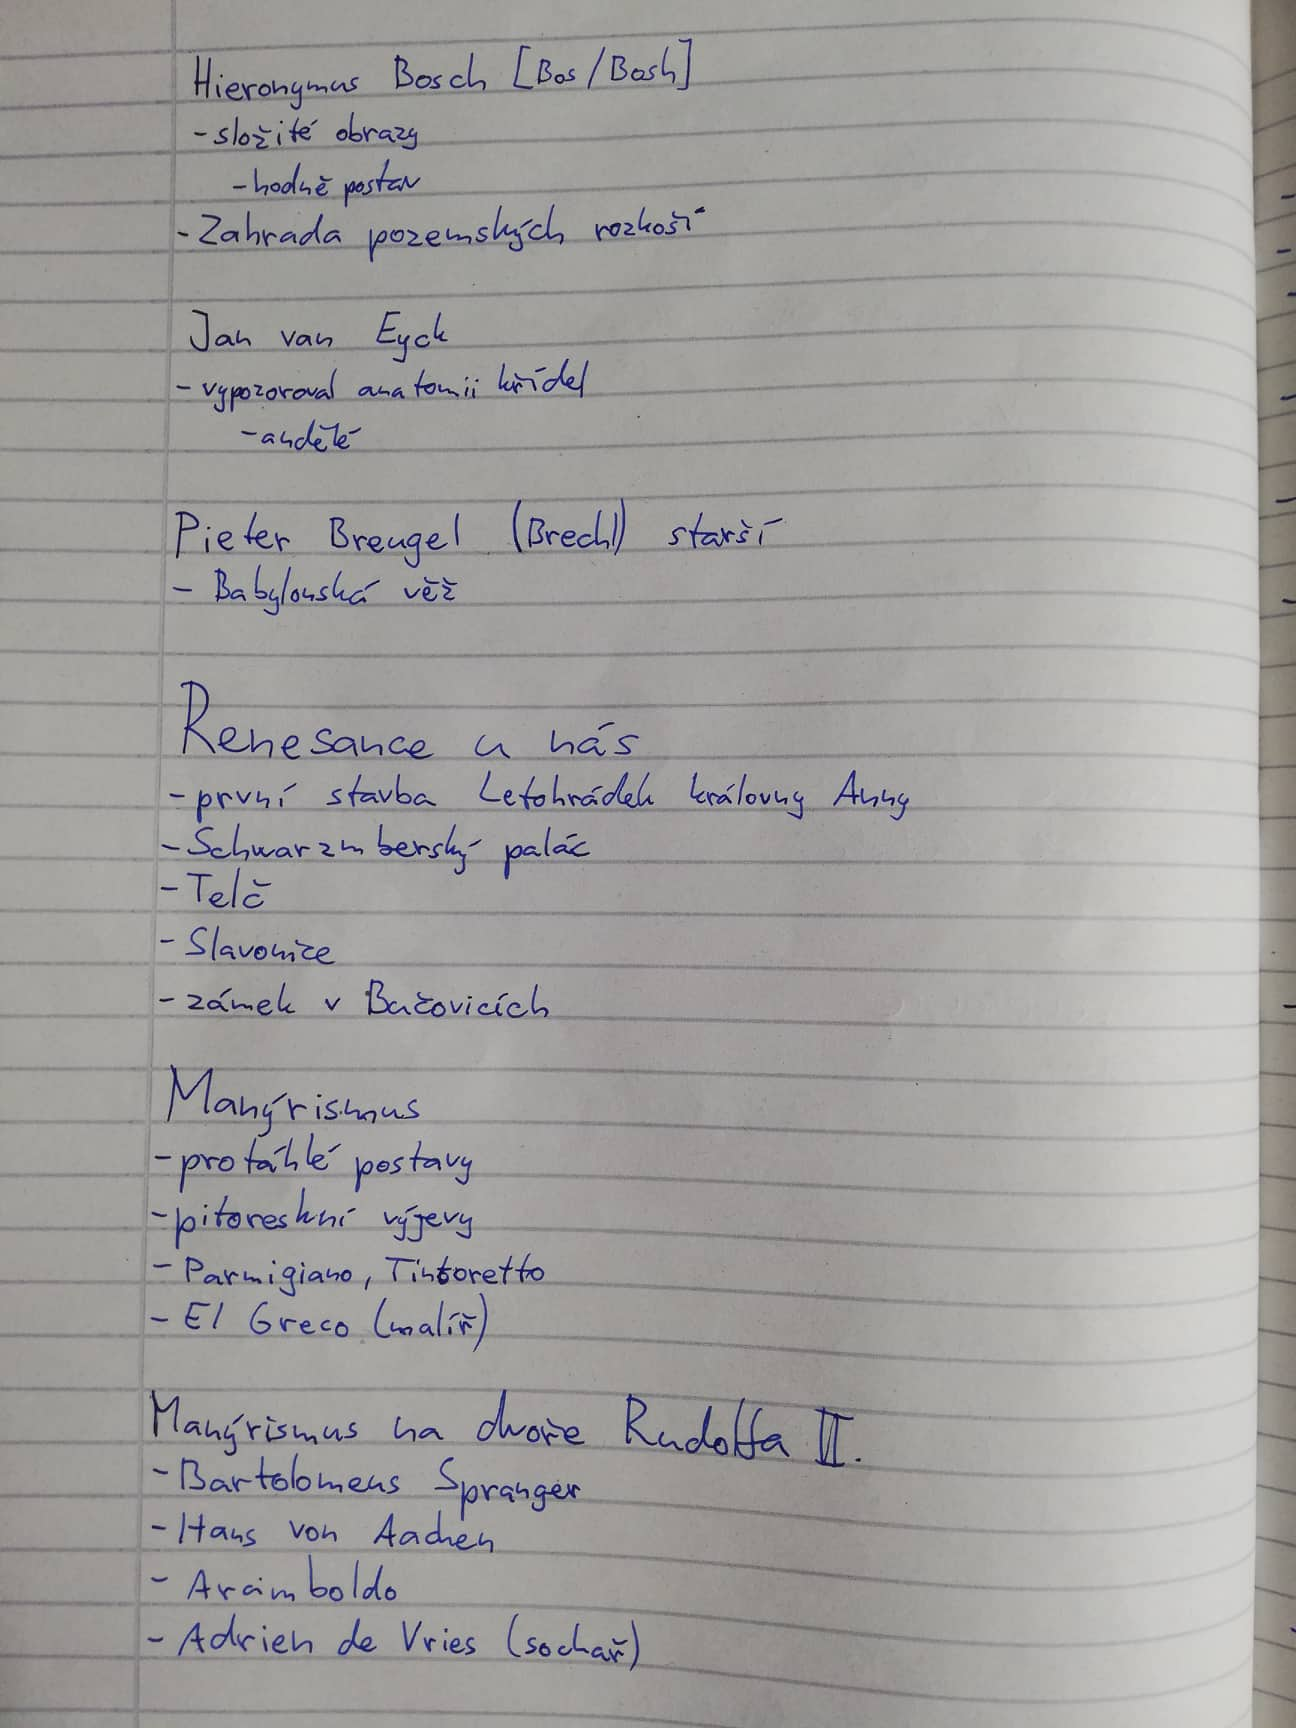 Hieronymus Bosch [Bos/Bosh]
- složité obrazy
- hodně postav
- Zahrada pozemských rozkoší
Jan van Eyck
- vypozoroval anatomii křídel
- andělé
Pieter Breugel (Brechl) starší
- Babylonská věž
Renesance u nás
- první stavba Letohrádek královny Anny
- Schwarzmberský palác
- Telč
- Slavonice
- zámek v Bučovicích
Manýrismus
- protáhlé postavy
- pitoreskní výjevy
- Parmigiano, Tintoretto
- El Greco (malíř)
Manýrismus na dvoře Rudolfa II.
- Bartolomeus Spranger
- Hans von Aachen
- Arcimboldo
- Adrien de Vries (sochař)